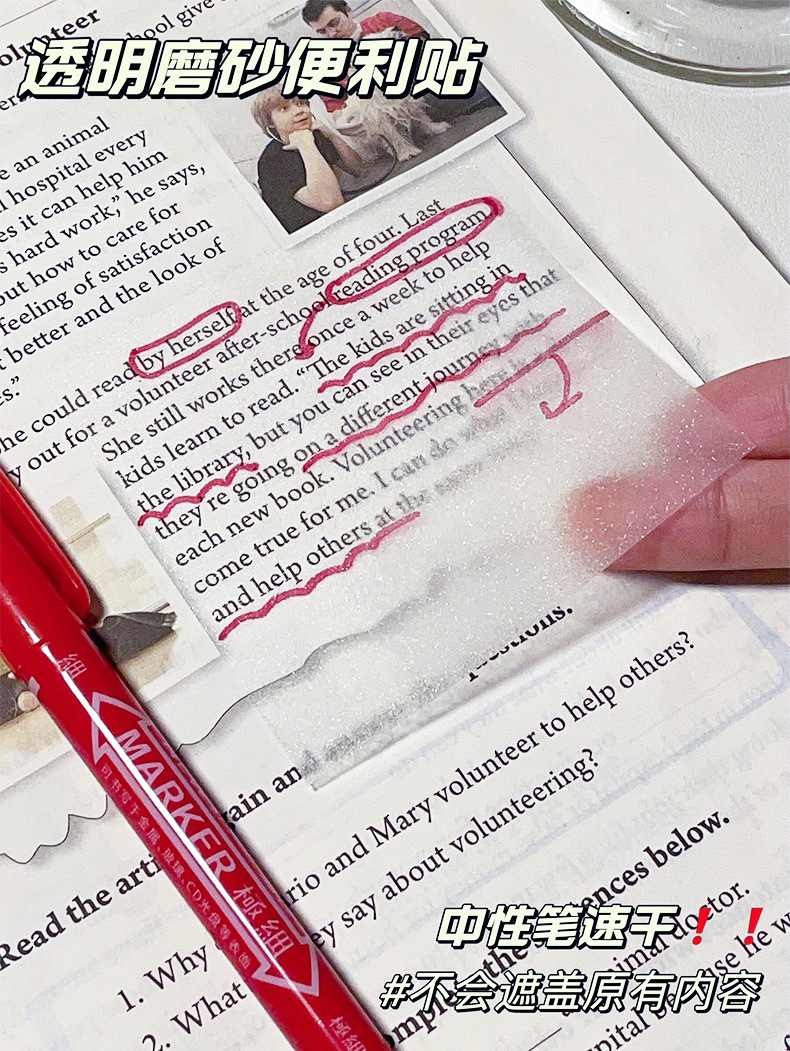 透明磨砂便利贴
olunteer
chool give o
e an animal
l hospital every
es it can help him
s hard work,” he says,
out how to care for
feeling of satisfaction
t better and the look of
es.”
he could read by herself at the age of four. Last
y out for a volunteer after-school reading program.
She still works there once a week to help
kids learn to read. “The kids are sitting in
the library, but you can see in their eyes that
they’re going on a different journey with
each new book. Volunteering here is
come true for me. I can do what I
and help others at the same
Read the arti
ain an
1. Why
rio and Mary volunteer to help others?
2. What
ey say about volunteering?
mple the
ences below.
animal doctor.
spital
se he w
細
MARKER 極細
可书写于金属、玻璃、CD光盘等表面
極細
中性笔速干❗❗
#不会遮盖原有内容